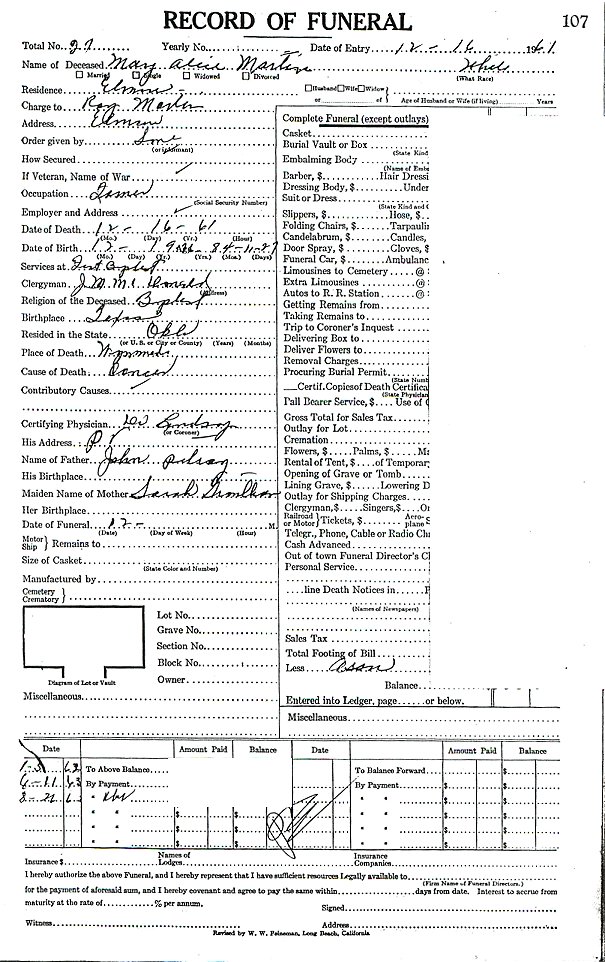 RECORD OF FUNERAL
107
Total No. 27 Yearly No. Date of Entry 12 - 16 1961
Name of Deceased Mary Alice Martin
Married Single Widowed Divorced (What Race)
Residence Elmore Husband Wife Widow
or of Age of Husband or Wife (if living) Years
Charge to Roy Martin
Address Elmore
Order given by Same
(or informant)
How Secured
If Veteran, Name of War
Occupation
(Social Security Number)
Employer and Address
Date of Death 12 - 16 - 61
(Mo.) (Day) (Yr.) (Hour)
Date of Birth
(Mo.) (Day) (Yr.) (Yrs. (Mos.) (Days)
Services at First Baptist
Clergyman J. W. McDonald
(Address)
Religion of the Deceased Baptist
Birthplace Texas
Resided in the State Okla
(or U. S. or City or County) (Years) (Months)
Place of Death Wynnewood
Cause of Death Cancer
Contributory Causes
Certifying Physician Lindsay
(or Coroner)
His Address
Name of Father John
His Birthplace
Maiden Name of Mother Sarah
Her Birthplace
Date of Funeral 12 - M.
(Date) (Day of Week) (Hour)
Motor Ship Remains to
Size of Casket
(State Color and Number)
Manufactured by
Cemetery Crematory
Lot No.
Grave No.
Section No.
Block No.
Owner
Diagram of Lot or Vault
Miscellaneous
Complete Funeral (except outlays)
Casket
Burial Vault or Box
(State Kind
Embalming Body
(Name of Emba
Barber, $ Hair Dressi
Dressing Body, $ Under
Suit or Dress
(State Kind and C
Slippers, $ Hose, $
Folding Chairs, $ Tarpauli
Candelabrum, $ Candles,
Door Spray, $ Gloves, $
Funeral Car, $ Ambulanc
Limousines to Cemetery @
Extra Limousines @
Autos to R. R. Station @
Getting Remains from
Taking Remains to
Trip to Coroner's Inquest
Delivering Box to
Deliver Flowers to
Removal Charges
Procuring Burial Permit
(State Numb
Certif. Copies of Death Certifica
(State Physician
Pall Bearer Service, $ Use of
Gross Total for Sales Tax
Outlay for Lot
Cremation
Flowers, $ Palms, $ Ma
Rental of Tent, $ of Temporar
Opening of Grave or Tomb
Lining Grave, $ Lowering D
Outlay for Shipping Charges
Clergyman, $ Singers, $ Or
Railroad or Motor Tickets, $ Aero-plane $
Telegr., Phone, Cable or Radio Ch
Cash Advanced
Out of town Funeral Director's Cl
Personal Service
line Death Notices in
(Names of Newspapers)
Sales Tax
Total Footing of Bill
Less Assn
Balance
Entered into Ledger, page or below.
Miscellaneous
Date Amount Paid Balance Date Amount Paid Balance
To Above Balance To Balance Forward
6-11 63 By Payment By Payment
Insurance $ Names of Lodges Insurance Companies
I hereby authorize the above Funeral, and I hereby represent that I have sufficient resources Legally available to
(Firm Name of Funeral Directors.)
for the payment of aforesaid sum, and I hereby covenant and agree to pay the same within days from date. Interest to accrue from
maturity at the rate of % per annum.
Signed
Witness Address
Revised by W. W. Feineman, Long Beach, California